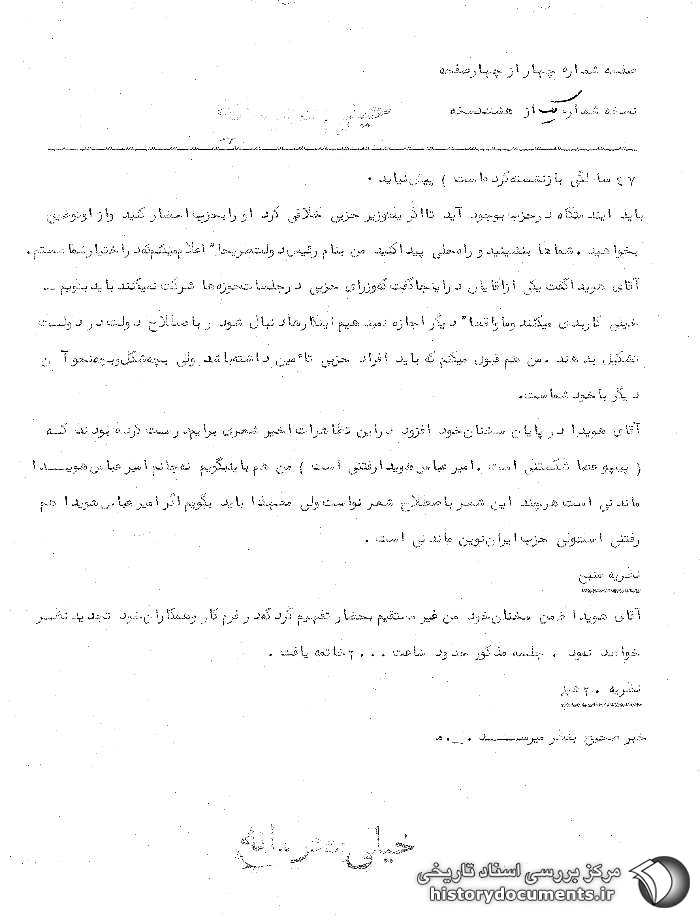 صفحه شماره چهار از چهار صفحه
نسخه شماره یک از هشت نسخه
خیلی محرمانه
۲۷ سالگی بازنشسته کرده است ) پیش نیاید .
باید این دستگاه در حزب بوجود آید تا اگر یک وزیر حزبی خلافی کرد او را بحزب احضار کنید و از او توضیح
بخواهید . شماها بنشینید و راه حلی پیدا کنید من بنام رئیس دولت صریحا" اعلام میکنم که در اختیار شما هستم .
آقای هویدا گفت یکی از آقایان در اینجا گفت که وزرای حزبی در جلسات حوزه ها شرکت نمیکنند باید بگویم _
خیلی کار بدی میکنند و ما واقعا" دیگر اجازه نمیدهیم اینکارها دنبال شود و باصطلاح دولت در دولت
تشکیل بدهند . من هم قبول میکنم که باید افراد حزبی تأمین داشته باشد ولی بچه شکل و بچه نحو آن
دیگر با خود شماست .
آقای هویدا در پایان سخنان خود افزود در این تظاهرات اخیر شعری برایم درست کرده بودند که
( پیپ و عصا شکستنی است . امیر عباس هویدا رفتنی است ) من هم باید بگویم نه جانم امیر عباس هویدا
ماندنی است هرچند این شعر باصطلاح شعر نو است ولی معهذا باید بگویم اگر امیر عباس هویدا هم
رفتنی است ولی حزب ایران نوین ماندنی است .
نظریه منبع
آقای هویدا ضمن سخنان خود من غیر مستقیم بحضار تفهیم کرد که در فرم کار و همکاران خود تجدید نظر
خواهد نمود . جلسه مذکور حدود ساعت ۲۰۰۰ خاتمه یافت .
نظریه ۲۰ هـ
خبر صحیح بنظر میرسد . _ . ه
خیلی محرمانه
مرکز بررسی اسناد تاریخی
historydocuments.ir